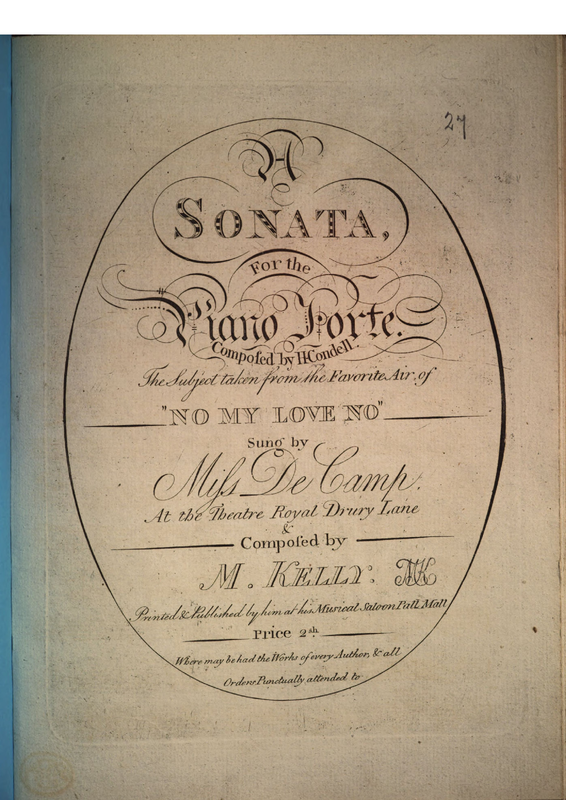 27
A
SONATA,
For the
Piano Forte.
Compoſed by H Condell.
The Subject taken from the Favorite Air of
"NO MY LOVE NO"
Sung by
Miſs De Camp.
At the Theatre Royal Drury Lane
&
Compoſed by
M. KELLY. MK
Printed & Publiſhed by him at his Musical Saloon Pall Mall
Price 2sh.
Where may be had the Works of every Author, & all
Orders Punctually attended to